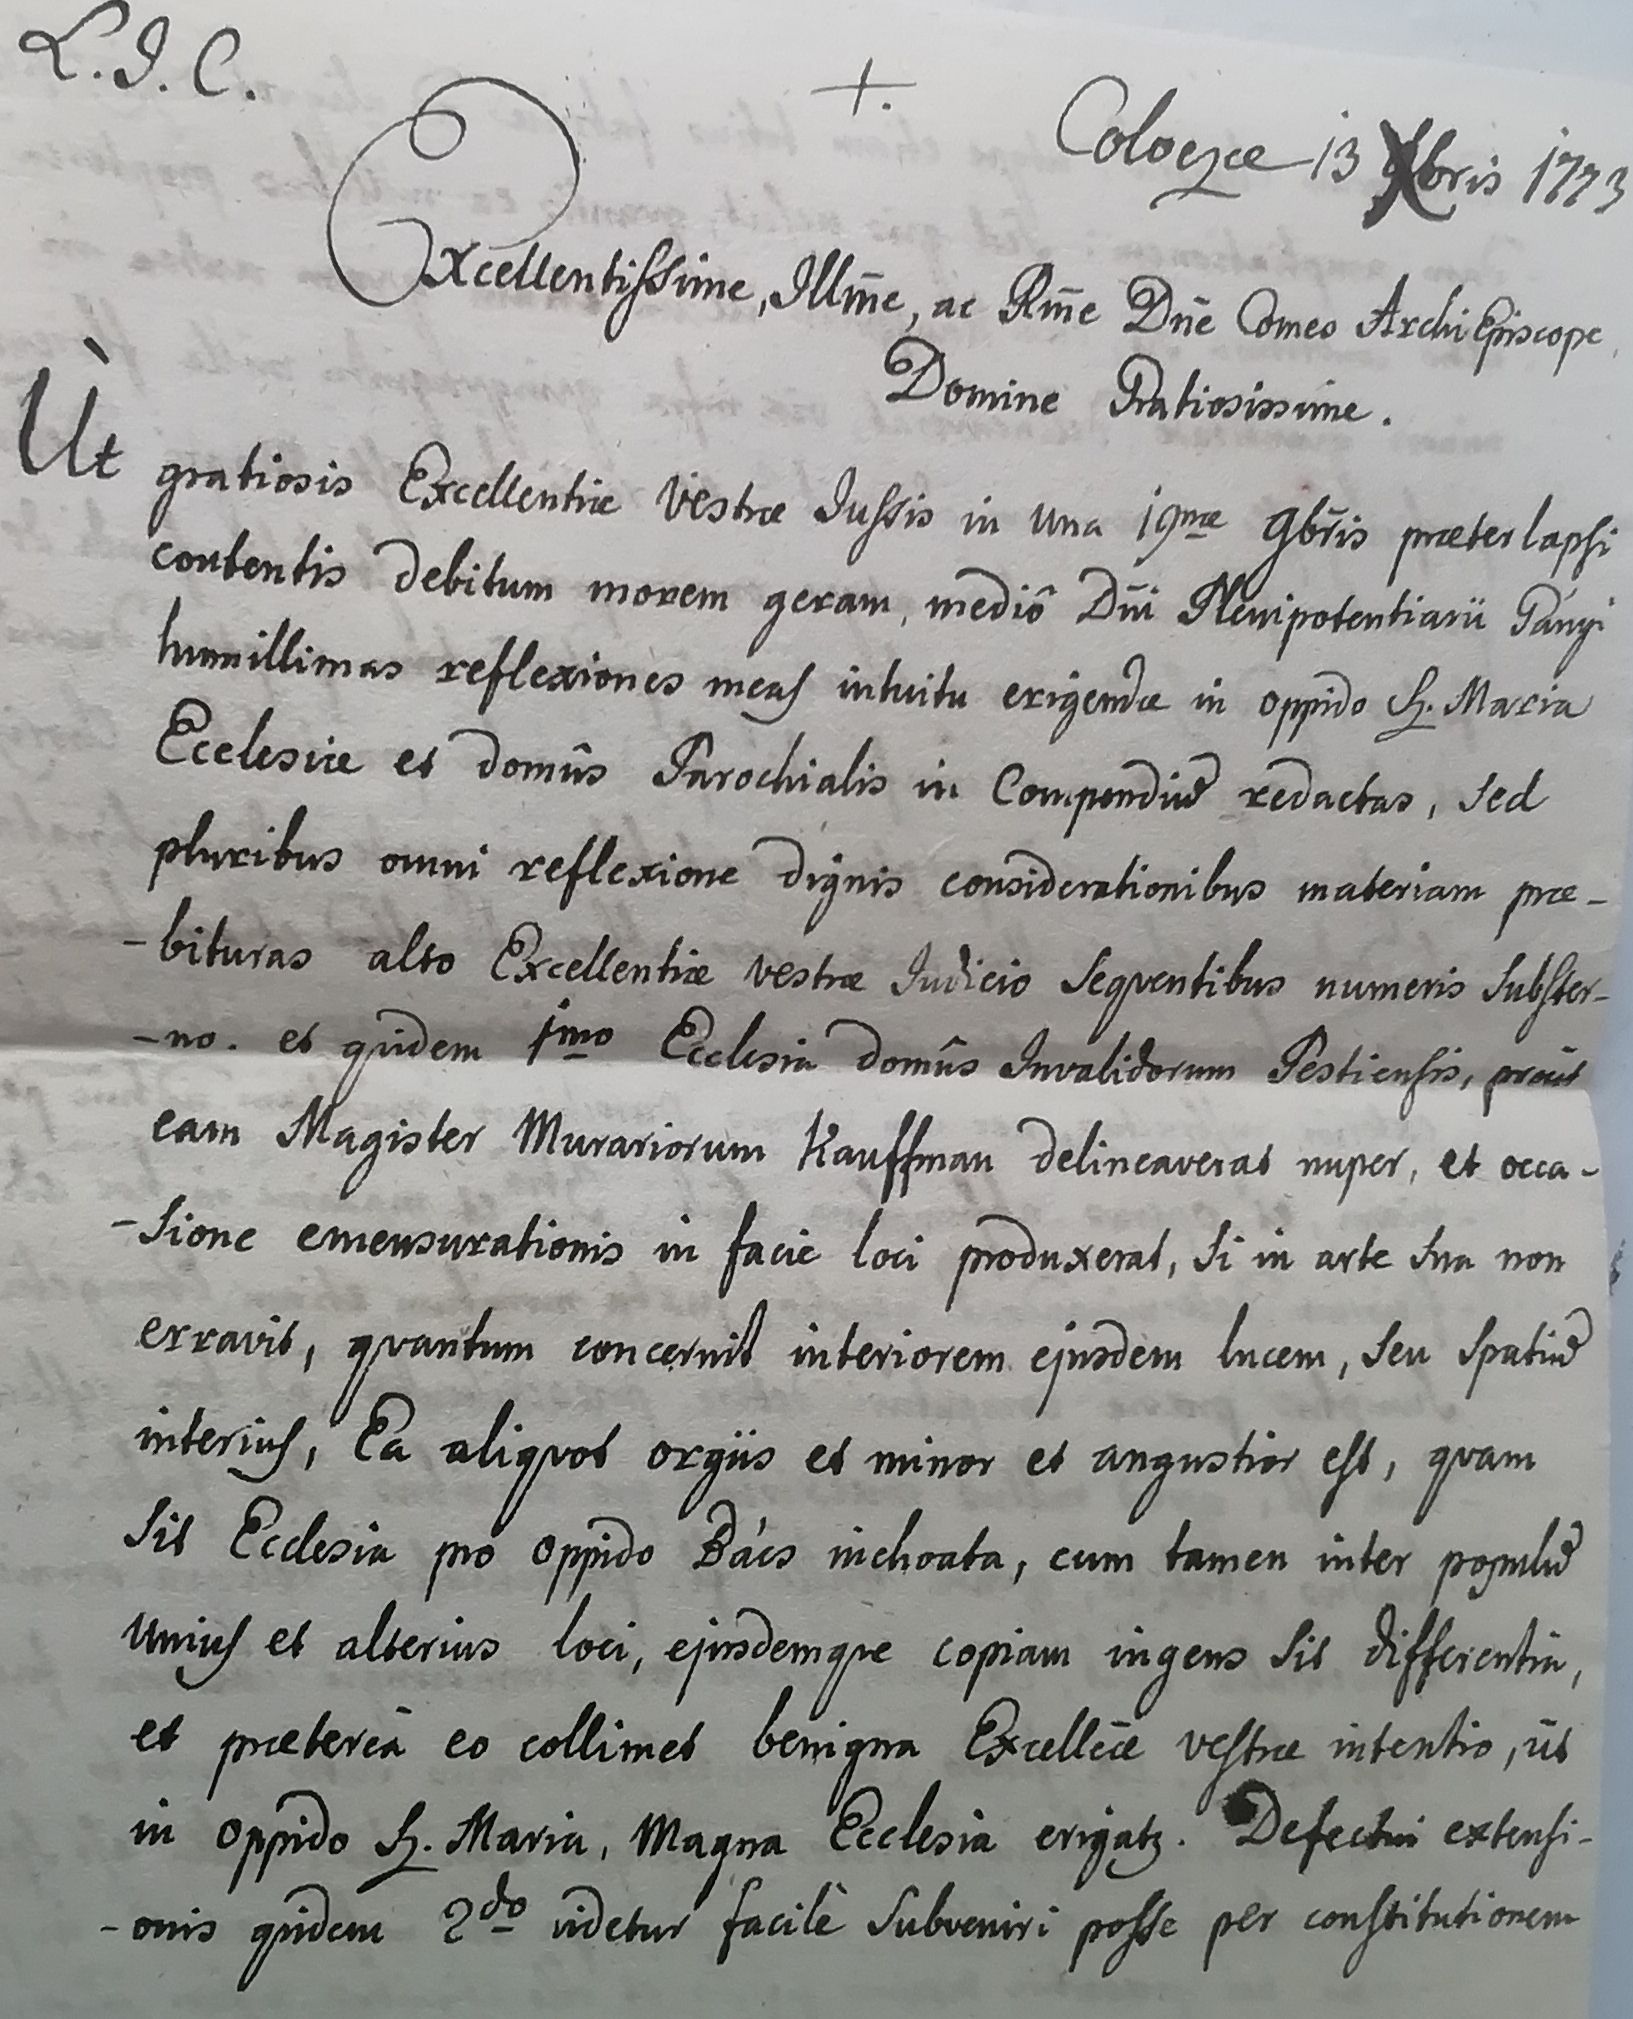 L. J. C.
+.
Coloczæ 13 Xbris 1773
Excellentissime, Illm̄e, ac Rm̄e Dn̄e Comes ArchiEpiscope,
Domine Gratiosissime.
Ut gratiosis Excellentiæ Vestræ Jussis in una 19næ 9br̄is præterlapsi
contentis debitum morem geram, mediô Dn̄i Plenipotentiarii Pányi
humillimas reflexiones meas intuitu erigendæ in oppido Sz. Maria
Ecclesiæ et domûs Parochialis in Compendiũ redactas, sed
pluribus omni reflexione dignis considerationibus materiam præ-
-bituras alto Excellentiæ vestræ Judicio Seqventibus numeris Subster-
-no. et qvidem 1mo Ecclesia domûs Invalidorum Pestiensis, proūt
eam Magister Murariorum Kauffman delineaverat nuper, et occa-
-sione emensurationis in facie loci produxerat, si in arte sua non
erravit, qvantum concernit interiorem ejusdem lucem, seu Spatiũ
interius, Ea aliqvot orgiis et minor et angustior est, qvam
sit Ecclesia pro oppido Bács inchoata, cum tamen inter populũ
unius et alterius loci, ejusdemqve copiam ingens sit differentia,
et præterea eo collimet benigna Excellēæ vestræ intentio, ūt
in oppido Sz. Maria, Magna Ecclesia erigatz. Defectui extensi-
-onis qvidem 2do videtur facilè Subveniri posse per constitutionem